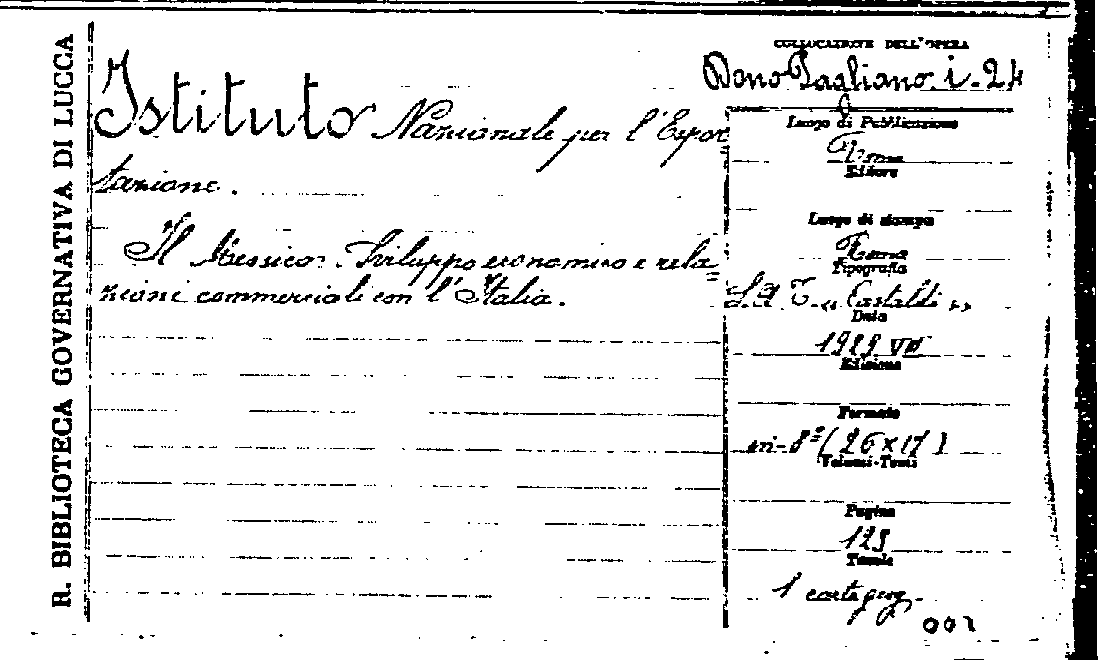 R. BIBLIOTECA GOVERNATIVA DI LUCCA
Istituto Nazionale per l'Espor=
tazione.
Il Messico. Sviluppo economico e rela=
zioni commerciali con l'Italia.
COLLOCAZIONE DELL'OPERA
Dono Pagliano. i-24
Luogo di Pubblicazione
Roma
Editore
Luogo di stampa
Roma
Tipografia
S.A.T. „Castaldi„
Data
1929 VII
Edizione
Formato
in-8º (26×17)
Volumi-Tomi
Pagine
Tavole
1 carta geog.